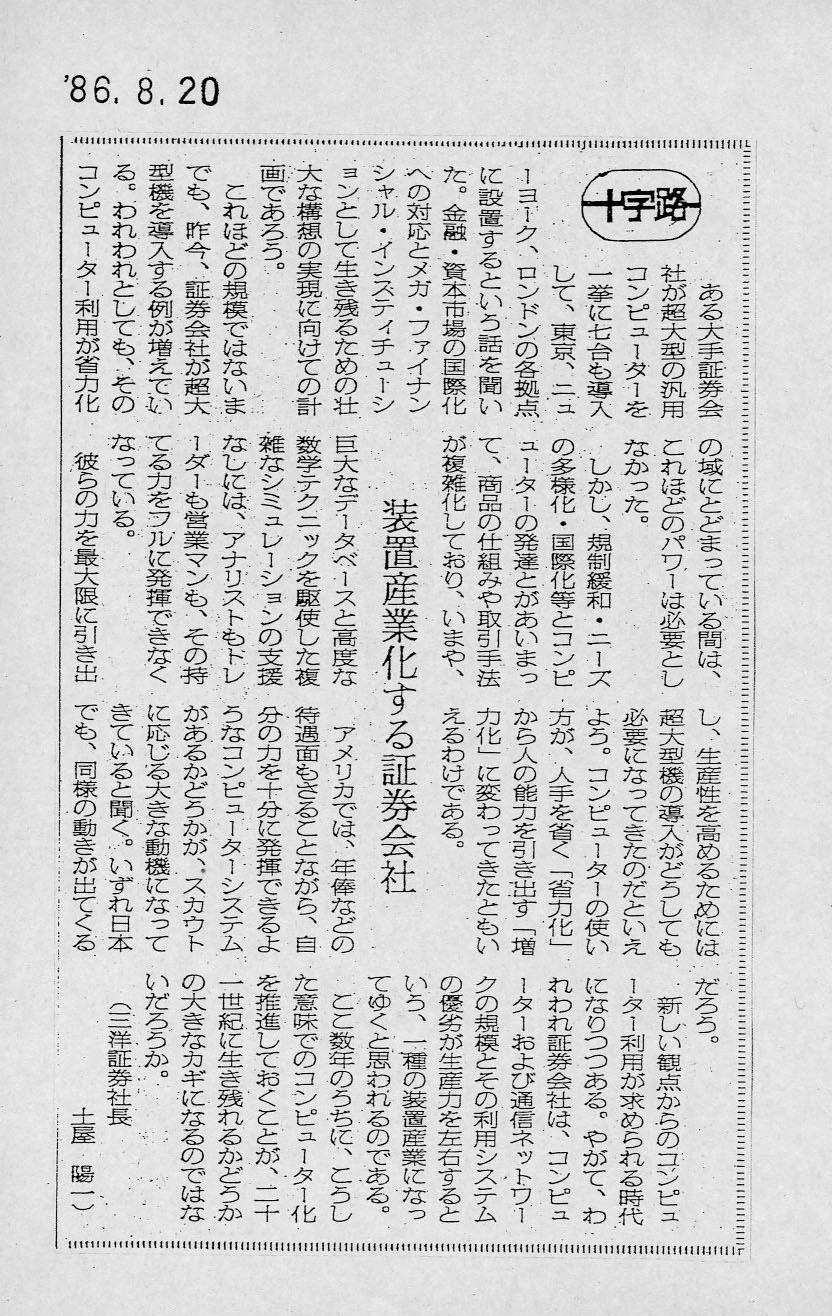 '86.8.20
十字路
装置産業化する証券会社
ある大手証券会
社が超大型の汎用
コンピューターを
一挙に七台も導入
して、東京、ニュ
ーヨーク、ロンドンの各拠点
に設置するという話を聞い
た。金融・資本市場の国際化
への対応とメガ・ファイナン
シャル・インスティチューシ
ョンとして生き残るための壮
大な構想の実現に向けての計
画であろう。
これほどの規模ではないま
でも、昨今、証券会社が超大
型機を導入する例が増えてい
る。われわれとしても、その
コンピューター利用が省力化
の域にとどまっている間は、
これほどのパワーは必要とし
なかった。
しかし、規制緩和・ニーズ
の多様化・国際化等とコンピ
ューターの発達とがあいまっ
て、商品の仕組みや取引手法
が複雑化しており、いまや、
巨大なデータベースと高度な
数学テクニックを駆使した複
雑なシミュレーションの支援
なしには、アナリストもトレ
ーダーも営業マンも、その持
てる力をフルに発揮できなく
なっている。
彼らの力を最大限に引き出
し、生産性を高めるためには
超大型機の導入がどうしても
必要になってきたのだといえ
よう。コンピューターの使い
方が、人手を省く「省力化」
から人の能力を引き出す「増
力化」に変わってきたともい
えるわけである。
アメリカでは、年俸などの
待遇面もさることながら、自
分の力を十分に発揮できるよ
うなコンピューターシステム
があるかどうかが、スカウト
に応じる大きな動機になって
きていると聞く。いずれ日本
でも、同様の動きが出てくる
だろう。
新しい観点からのコンピュ
ーター利用が求められる時代
になりつつある。やがて、わ
れわれ証券会社は、コンピュ
ーターおよび通信ネットワー
クの規模とその利用システム
の優劣が生産力を左右すると
いう、一種の装置産業になっ
てゆくと思われるのである。
ここ数年のうちに、こうし
た意味でのコンピューター化
を推進しておくことが、二十
一世紀に生き残れるかどうか
の大きなカギになるのではな
いだろうか。
（三洋証券社長
土屋 陽一）